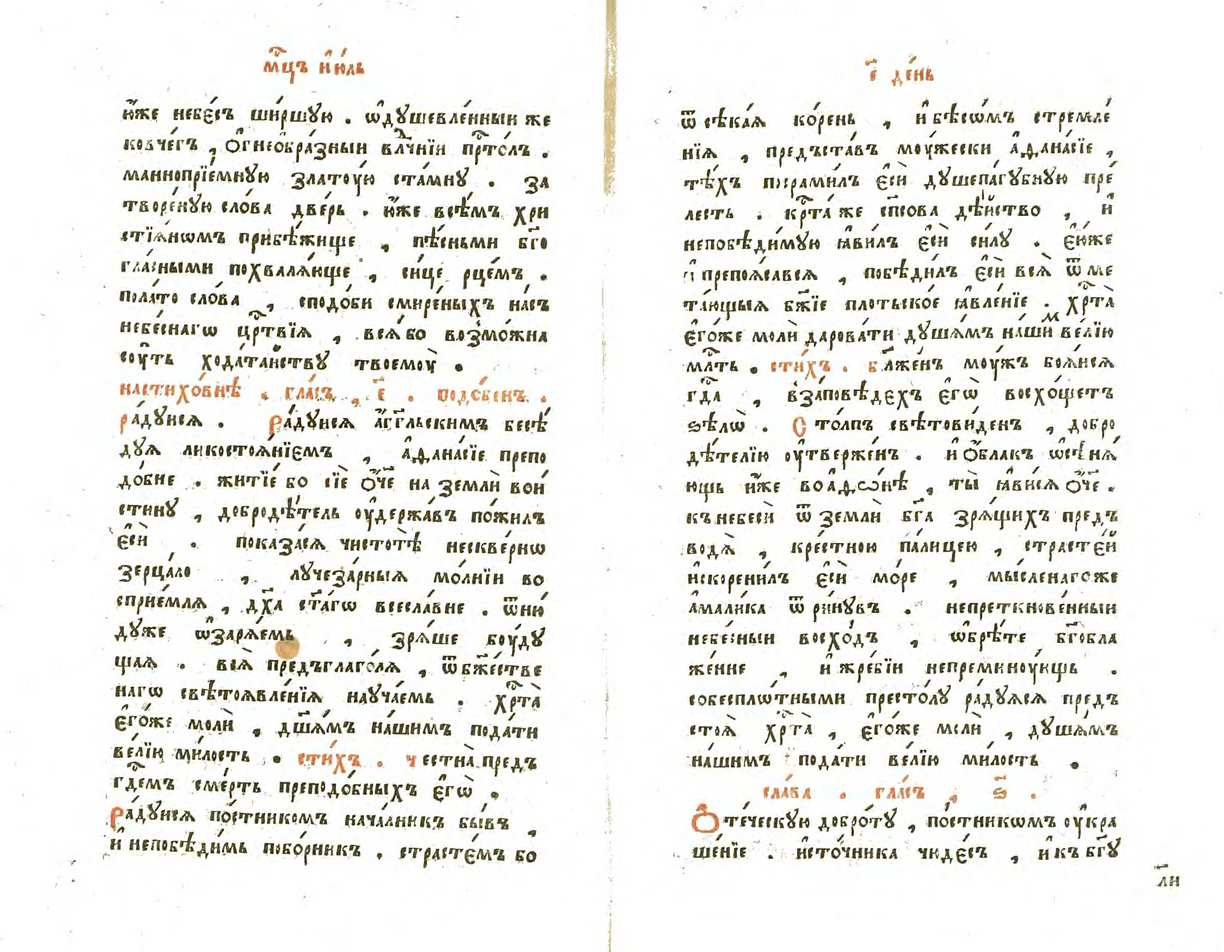 мⷭ҇цъ і҆ю́ль
ю҆́же небе́съ ши́ршую . ѡ҆душевле́нныи же
ковче́гъ , ѻ҆гнеѻбра́зныи влⷣчнїи прⷭ҇то́лъ .
маннопрїе́мную златꙋ́ю ста́мну . за
творе́ную сло́ва две́рь . ю҆́же всѣ́мъ хри
стїѧ́нѡмъ прибѣ́жище , пѣ́сньми бг҃о
гла́сными похвалѧ́юще , си́це рце́мъ .
пола́то сло́ва , сподо́би смире́ныхъ на́съ
небе́снагѡ црⷭ҇твїѧ , всѧ̀ бо возмо́жна
сꙋ́ть хода́таиству твоемꙋ̀ .
настихо́внѣ . гла́съ , є҃ . подо́бенъ .
ра́дуисѧ . Ра́дуисѧ а҆́гг҃льскимъ бесѣ́
дуѧ ликостоѧ́нїемъ , а҆ѳана́сїе препо
до́бне . житїе́ бо сїѐ ѻ҆́ч҃е на землѝ вои́
стину , доброде́тель ᲂу҆держа́въ пожи́лъ
є҆сѝ . показа́сѧ чистотѣ̀ нескве́рнѡ
зерца́ло , лучеза́рныѧ мо́лнїи во
спрїе́млѧ , дх҃а ст҃а́гѡ всесла́вне . ѿню́
ду́же ѡ҆зарѧ́емь , зрѧ́ше бꙋ́ду
щаѧ . всѧ̀ предъглаго́лѧ , ѿбж҃е́стве
нагѡ свѣтоѧвле́нїѧ науча́емь . хрⷭ҇та̀
є҆го́же молѝ , дш҃а́мъ на́шимъ пода́ти
ве́лїю ми́лость . сти́хъ . честна̀ предъ
гдⷭ҇емъ сме́рть преподо́бныхъ є҆гѡ̀ .
Ра́дуисѧ по́стникомъ нача́лникъ бы́въ ,
и҆ непобѣди́мь побо́рникъ , страсте́мъ бо
є҃ де́нь
ѿсѣка́ѧ ко́рень , и҆ бѣсѡ́мъ стремле́
нїѧ , предъста́въ мꙋ́жески а҆ѳана́сїе ,
тѣ́хъ посрами́лъ є҆сѝ душепагу́бную пре́
лесть . крⷭ҇та́ же сп҃сова дѣ́иство , и҆
непобѣди́мую ꙗ҆ви́лъ є҆сѝ си́лу . є҆ю́же
и҆ препоѧ́савсѧ , побѣди́лъ є҆сѝ всѧ̀ ѿме
та́ющыѧ бж҃їе пло́тьское ꙗ҆вле́нїе . хрⷭ҇та̀
є҆го́же молѝ дарова́ти душа́мъ на́шим ве́лїю
млⷭ҇ть . сти́хъ . блаже́нъ мꙋ́жъ боѧ́исѧ
гдⷭ҇а , в҆за́повѣдехъ є҆гѡ̀ восхо́щетъ
ѕѣлѡ̀ . Сто́лпъ свѣтови́денъ , добро
дѣ́телїю ᲂу҆твержде́нъ . и҆ ѻ҆́блакъ ѡ҆сѣнѧ́
ющь и҆́же во а҆ѳѡ́нѣ , ты̀ ꙗ҆ви́сѧ ѻ҆́ч҃е .
къ небесѝ ѿ землѝ бг҃а зрѧ́щихъ пред̾
водѧ̀ , кре́стною па́лицею , страсте́и
и҆скорени́лъ є҆сѝ мо́ре , мы́сленагоже
а҆мали́ка ѿри́нувъ . непреткнове́нныи
небе́сныи восхо́дъ , ѡ҆брѣ́те бг҃обла
же́нне , и҆ жре́бїи непремину́ющь .
собеспло́тными престо́лу ра́дуѧсѧ предъ
стоѧ̀ хрⷭ҇та̀ , є҆го́же молѝ , душа́мъ
на́шимъ пода́ти ве́лїю ми́лость .
сла́ва . гла́съ , ѕ҃ .
Ѻ҆те́ческую добро́ту , по́стникѡмъ ᲂу҆кра
ше́нїе . и҆сто́чника чюде́съ , и҆ къ бг҃у
ли